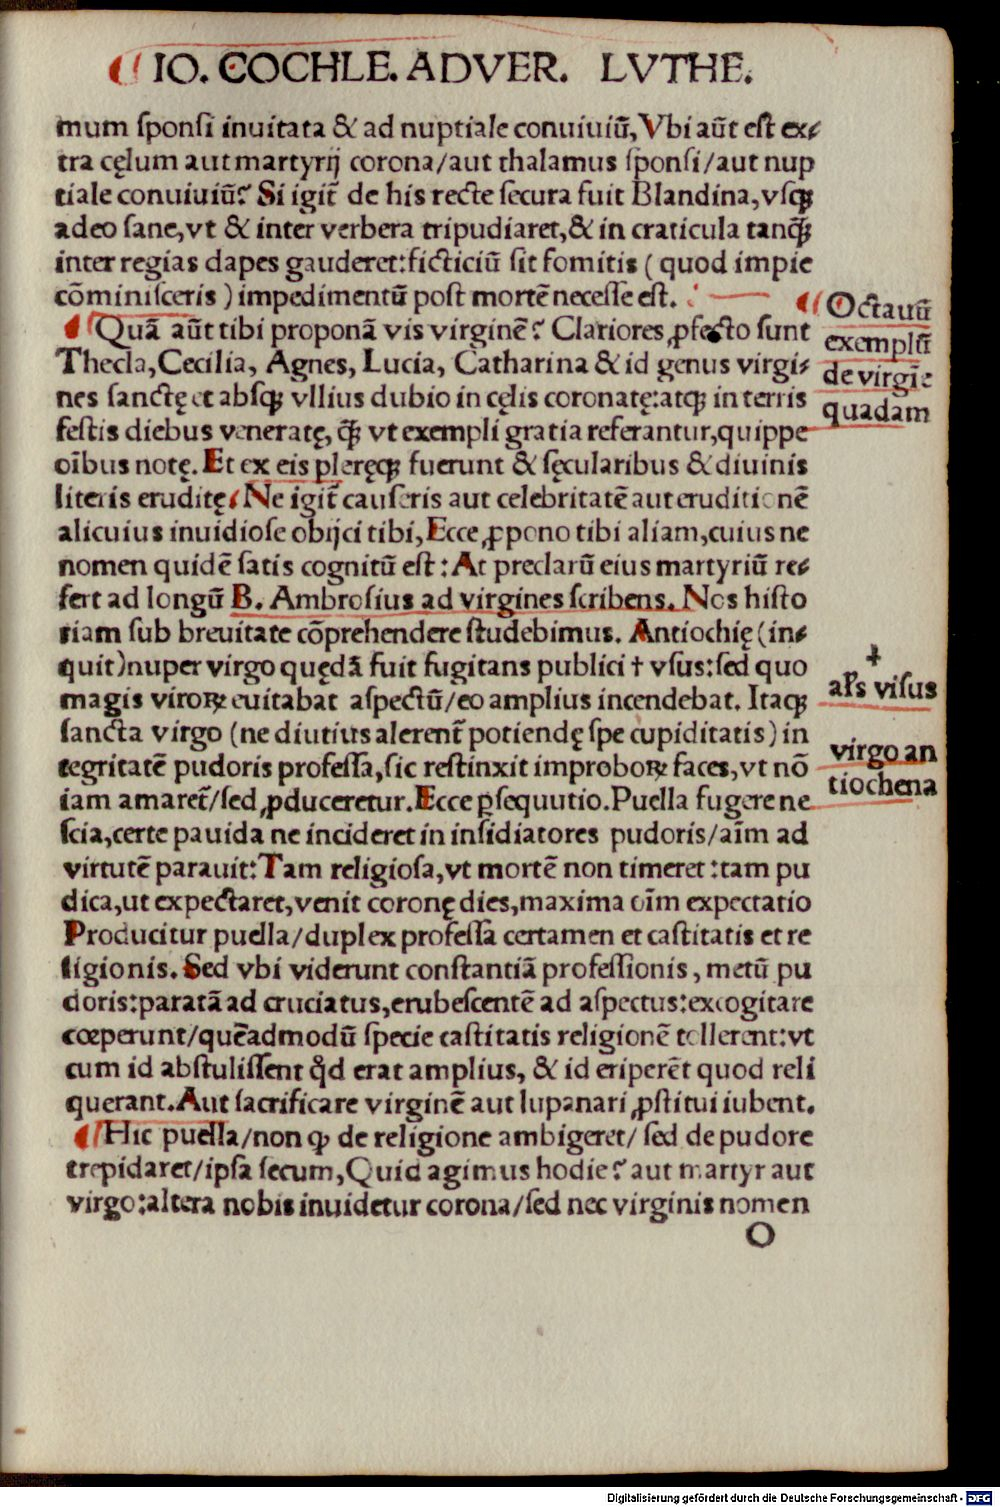 IO. COCHLE. ADVER. LVTHE.
mum sponsi inuitata & ad nuptiale conuiuiū, Vbi aūt est ex⸗
tra cęlum aut martyrij corona/aut thalamus sponsi/aut nup
tiale conuiuiū? Si igit̃ de his recte secura fuit Blandina, vsqꝫ
adeo sane, vt & inter verbera tripudiaret, & in craticula tanq̃ꝫ
inter regias dapes gauderet: ficticiū sit fomitis ( quod impie
cōminisceris ) impedimentū post mortē necesse est.
Octauū
exemplū
de virgīe
quadam
Quā aūt tibi proponā vis virginē? Clariores ꝓfecto sunt
Thecla, Cecilia, Agnes, Lucia, Catharina & id genus virgi⸗
nes sanctę et absqꝫ vllius dubio in cęlis coronatę: atqꝫ in terris
festis diebus veneratę, q̃ꝫ vt exempli gratia referantur, quippe
oībus notę. Et ex eis pleręqꝫ fuerunt & sęcularibus & diuinis
literis eruditę Ne igit̃ causeris aut celebritatē aut eruditionē
alicuius inuidiose obijci tibi, Ecce ꝓpono tibi aliam, cuius ne
nomen quidē satis cognitū est: At preclarū eius martyriū re⸗
fert ad longū B. Ambrosius ad virgines scribens. Nos histo
riam sub breuitate cōprehendere studebimus. Antiochię (in⸗
quit) nuper virgo quędā fuit fugitans publici † vsus: sed quo
magis viroꝝ euitabat aspectū/eo amplius incendebat. Itaqꝫ
†
aĺs visus
sancta virgo (ne diutius alerent̃ potiendę spe cupiditatis) in
tegritatē pudoris professa, sic restinxit improboꝝ faces, vt nō
iam amaret̃/sed ꝓduceretur. Ecce ꝑsequutio. Puella fugere ne
virgo an
tiochena
scia, certe pauida ne incideret in insidiatores pudoris/aīm ad
virtutē parauit: Tam religiosa, vt mortē non timeret: tam pu
dica, ut expectaret, venit coronę dies, maxima oīm expectatio
Producitur puella/duplex professa certamen et castitatis et re
ligionis. Sed vbi viderunt constantiā professionis, metū pu
doris: paratā ad cruciatus, erubescentē ad aspectus: excogitare
cœperunt/quēadmodū specie castitatis religionē tollerent: vt
cum id abstulissent q̊d erat amplius, & id eriperēt quod reli
querant. Aut sacrificare virginē aut lupanari ꝓstitui iubent.
Hic puella/non ꝙ de religione ambigeret/ sed de pudore
trepidaret/ipsa secum, Quid agimus hodie? aut martyr aut
virgo: altera nobis inuidetur corona/sed nec virginis nomen
O
Digitalisierung gefördert durch die Deutsche Forschungsgemeinschaft - DFG